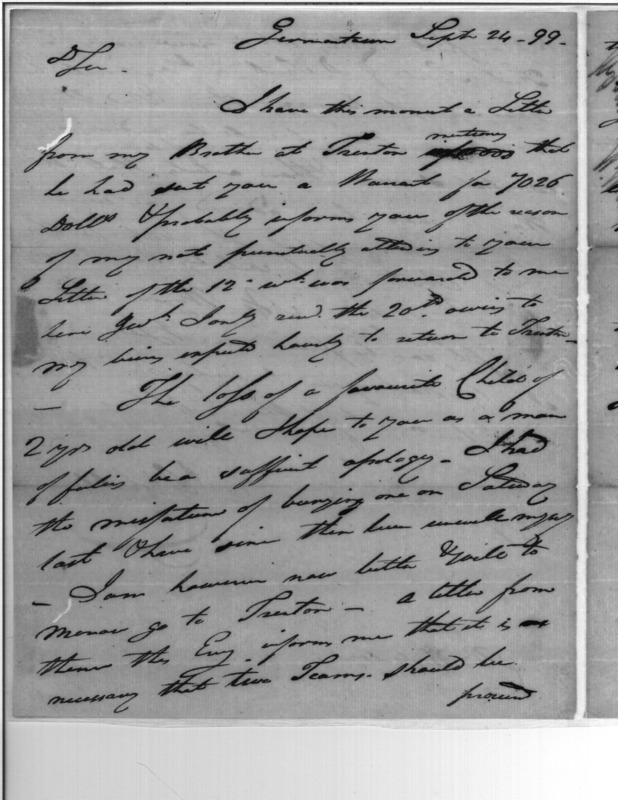 Germantown Sept 24 - 99 -
D Sir -
I have this moment a Letter
from my Brother at Trenton mentiong that
he had sent you a Warrat for 7026
Dolls & probably informs you of the reason
of my not punctually attedg to your
Letter of the 12th wh was forwarded to me
here only recd the 20th owing to
my being expectd hourly to return to Trenton -
- The loss of a favourite Child of
2 yrs old will I hope to you as a man
of feelis be a suffient apology - I had
the misfortune of burying one on Saturday
last & have since then been unwell myself
- I am however now better & will to
morrow go to Trenton - a letter from
thence this Eveg informs me that it is
necessary that two Teams should be
procured